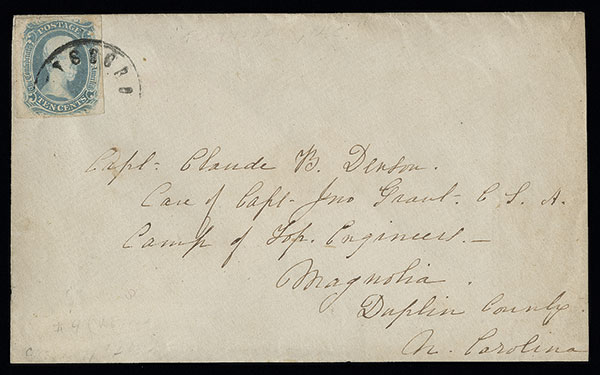 POSTAGE
TEN CENTS
Capt. Claude B. Denson.
Care of Capt. Jno Grant. C. S. A.
Camp of Top. Engineers.—
Magnolia.
Duplin County.
N. Carolina